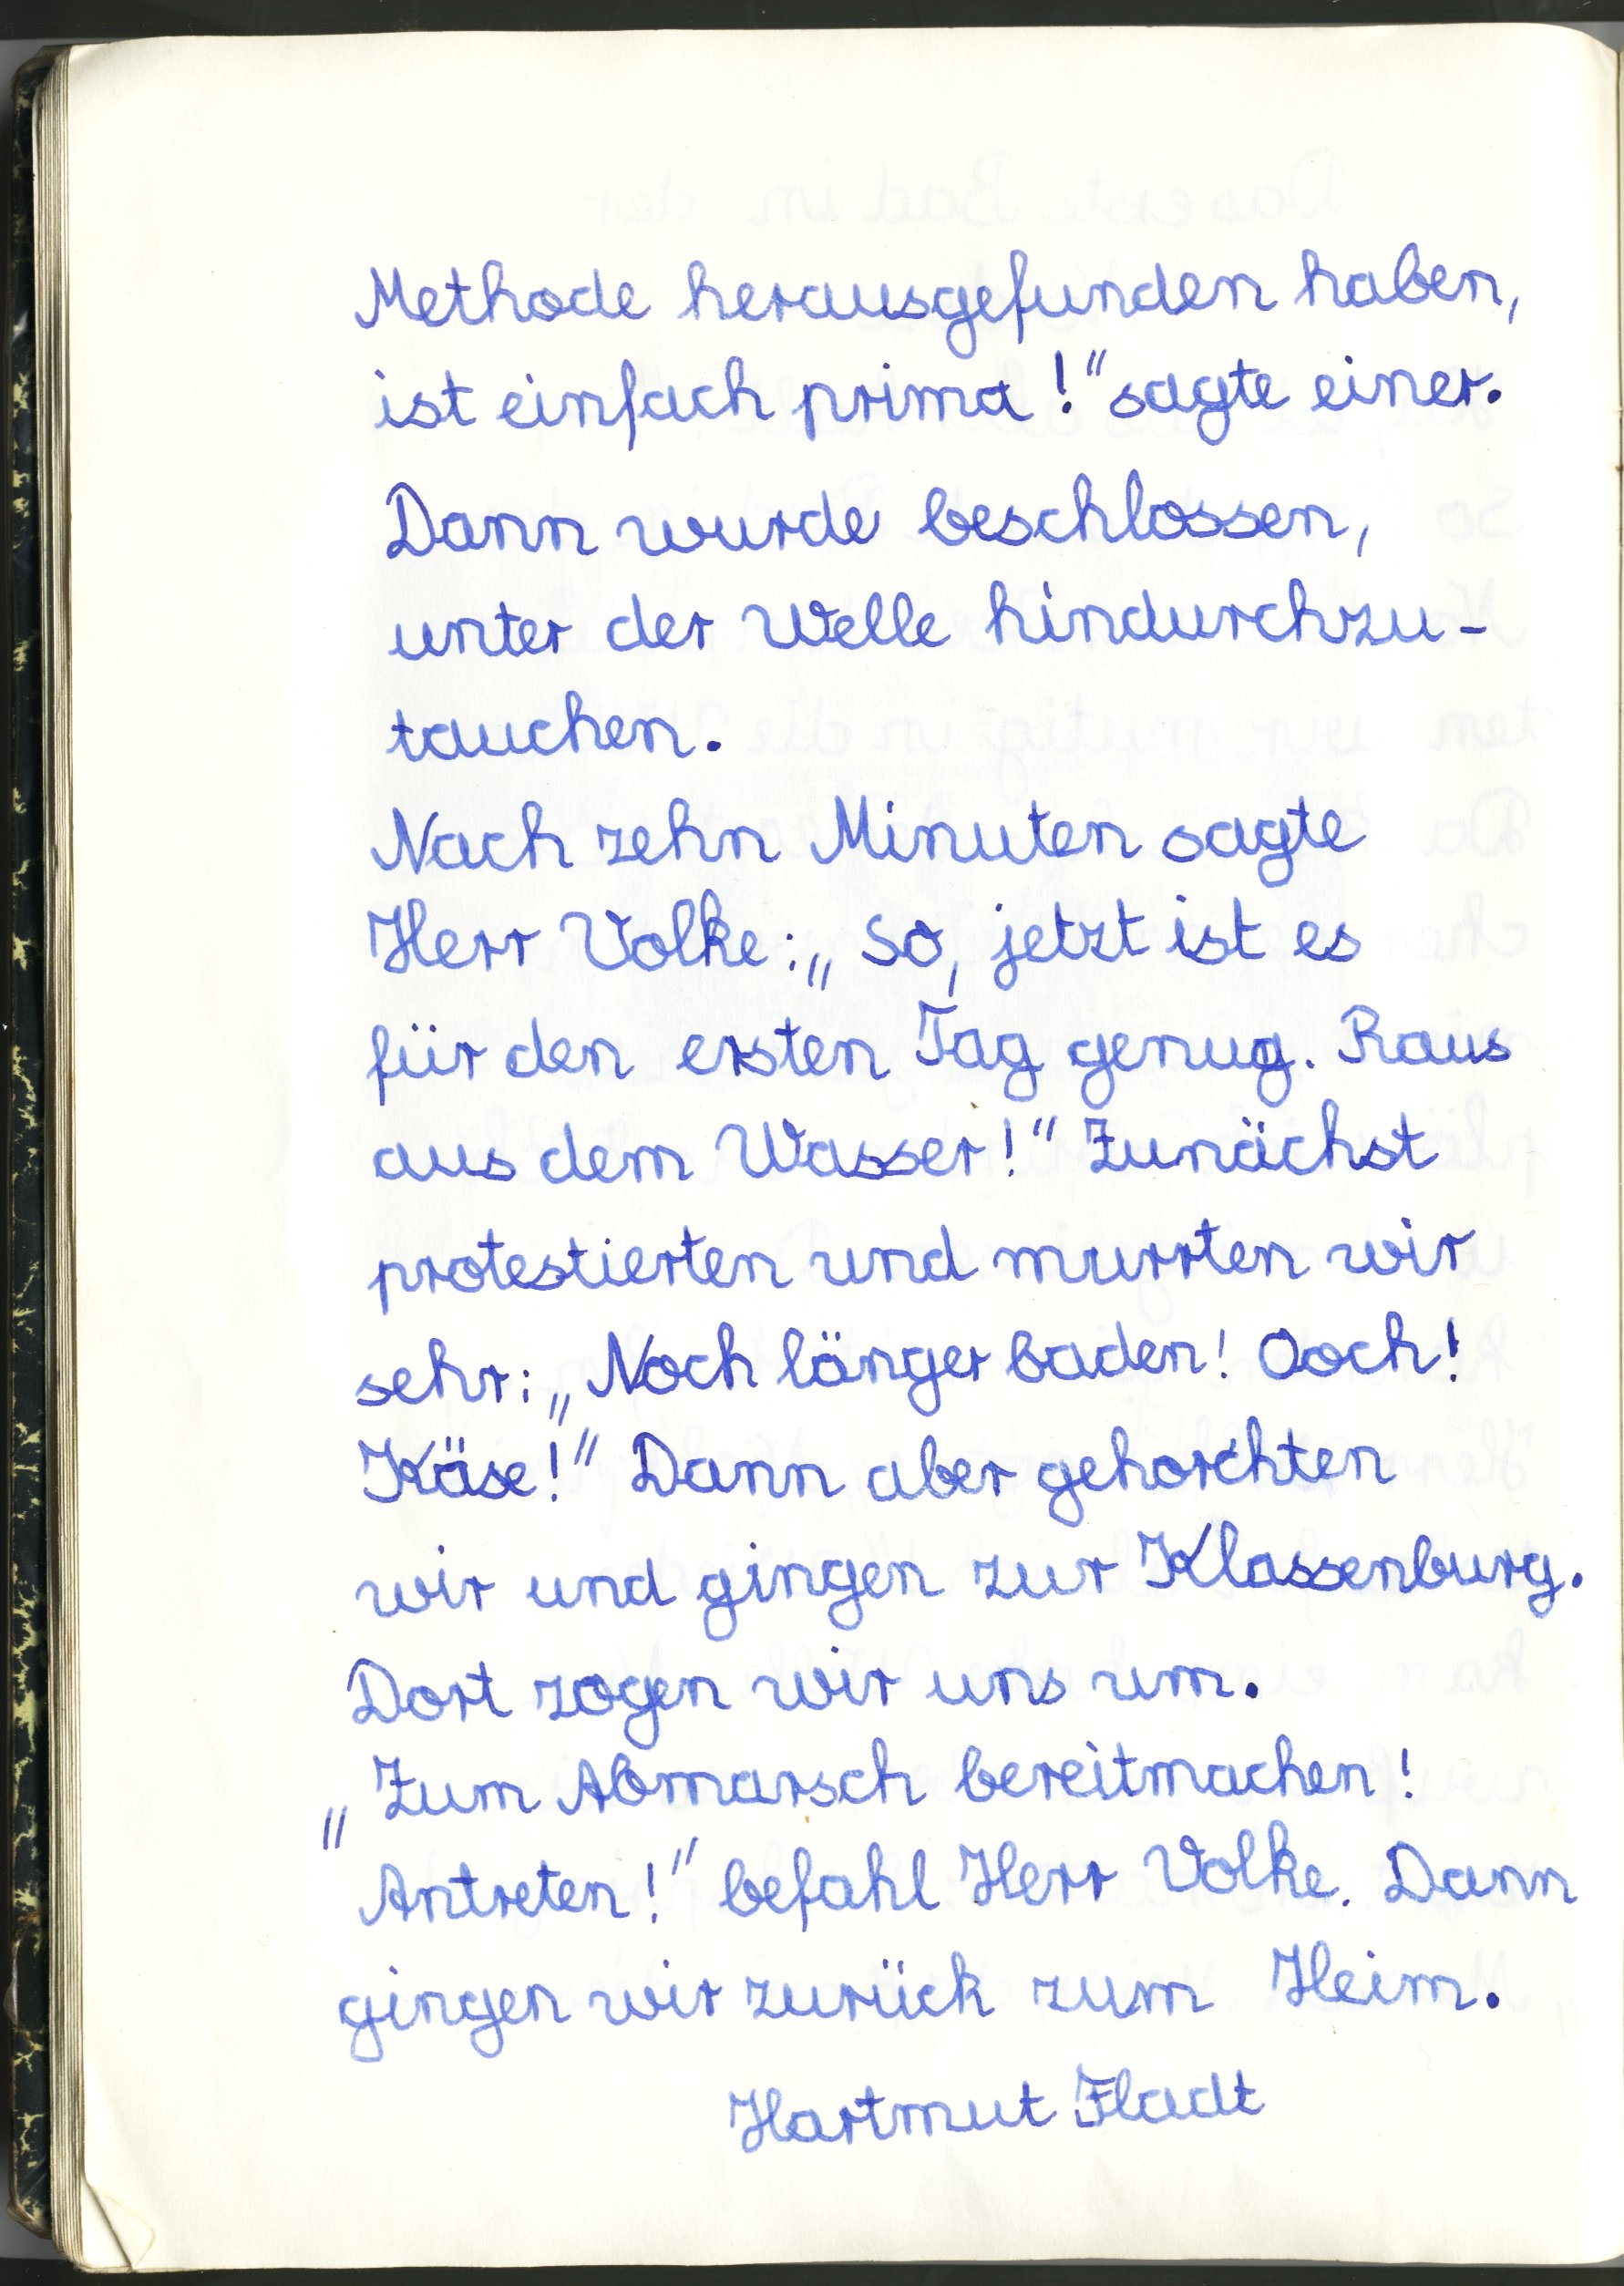 Methode herausgefunden haben,
ist einfach prima!" sagte einer.
Dann wurde beschlossen,
unter der Welle hindurchzu-
tauchen.
Nach zehn Minuten sagte
Herr Volke: „So, jetzt ist es
für den ersten Tag genug. Raus
aus dem Wasser!" Zunächst
protestierten und murrten wir
sehr: „Noch länger baden! Ooch!
Käse!" Dann aber gehorchten
wir und gingen zur Klassenburg.
Dort zogen wir uns um.
„Zum Abmarsch bereitmachen!
Antreten!" befahl Herr Volke. Dann
gingen wir zurück zum Heim.
Hartmut Fladt